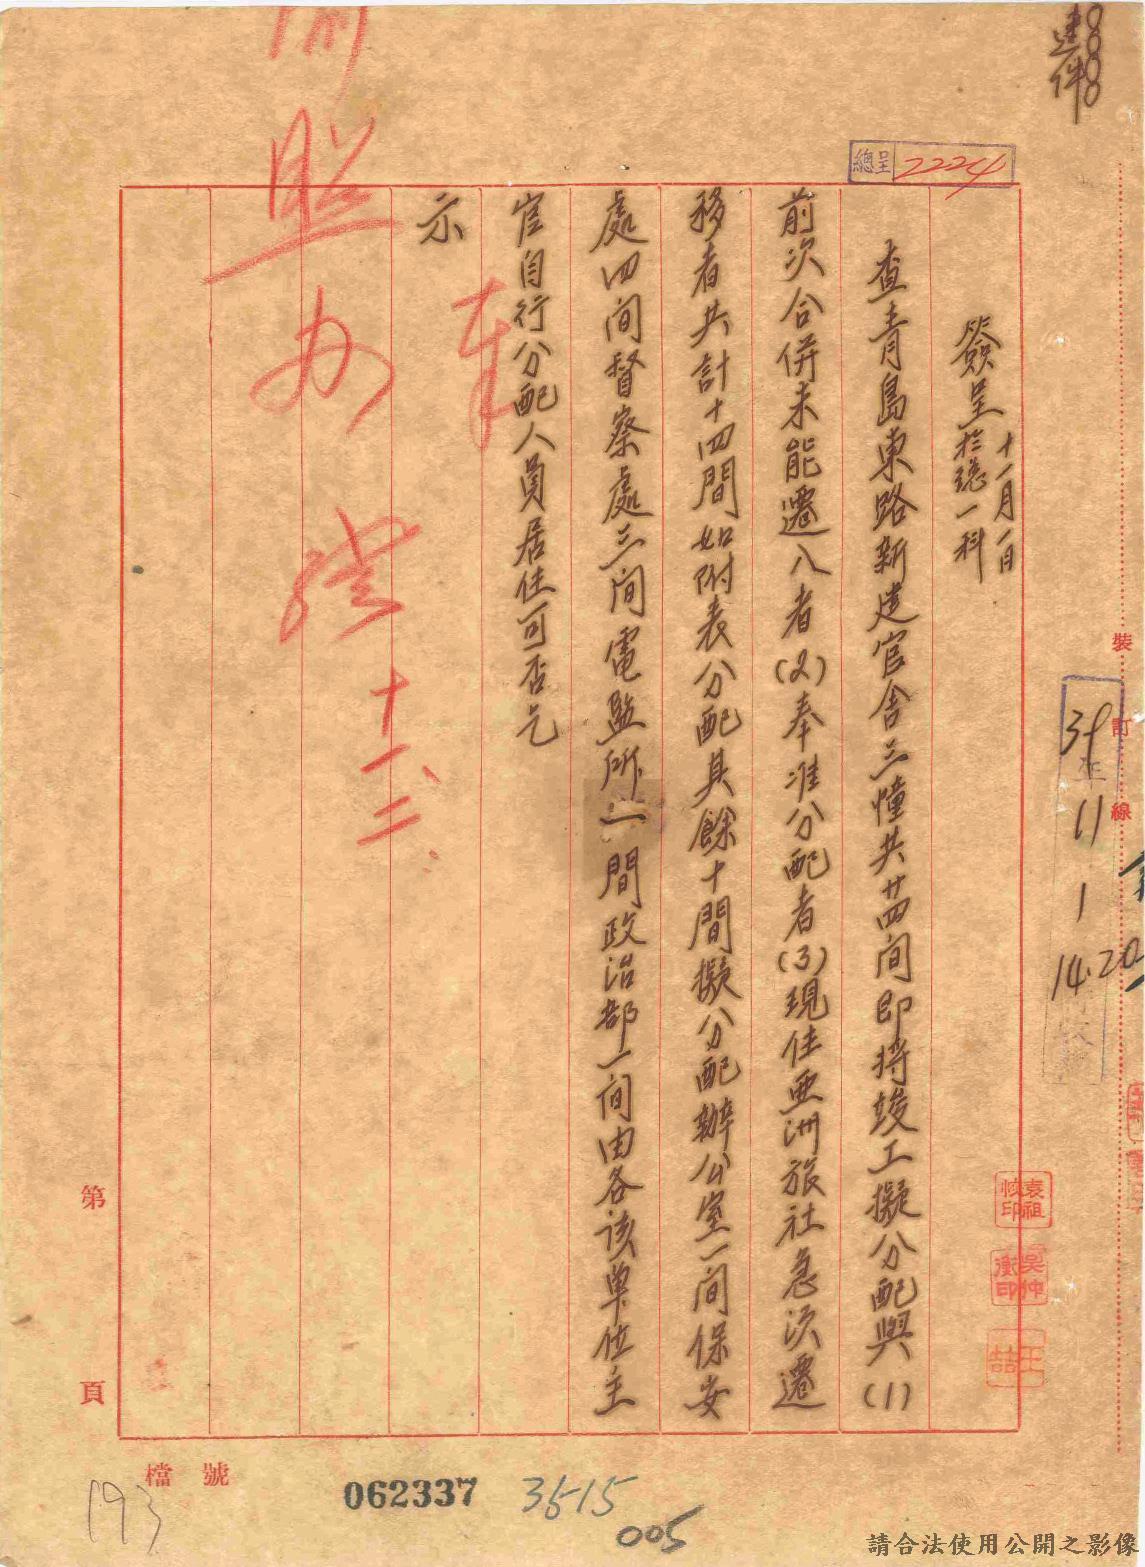 速件
總呈 2224
簽呈 十一月一日 於總一科
查青島東路新建官舍三幢共廿四間即將竣工擬分配與(1)
前次合併未能遷入者(2)奉准分配者(3)現住亞洲旅社急須遷
移者共計十四間如附表分配其餘十間擬分配辦公室一間保安
處四間督察處三間電監所一間政治部一間由各該單位主
官自行分配人員居住可否乞
示
照办
十一、二、
裝
訂
線
39
11
1
14.20
袁祖
印
吳仲
印
王喆
第
頁
檔 號
193
062337
3515
005
請合法使用公開之影像